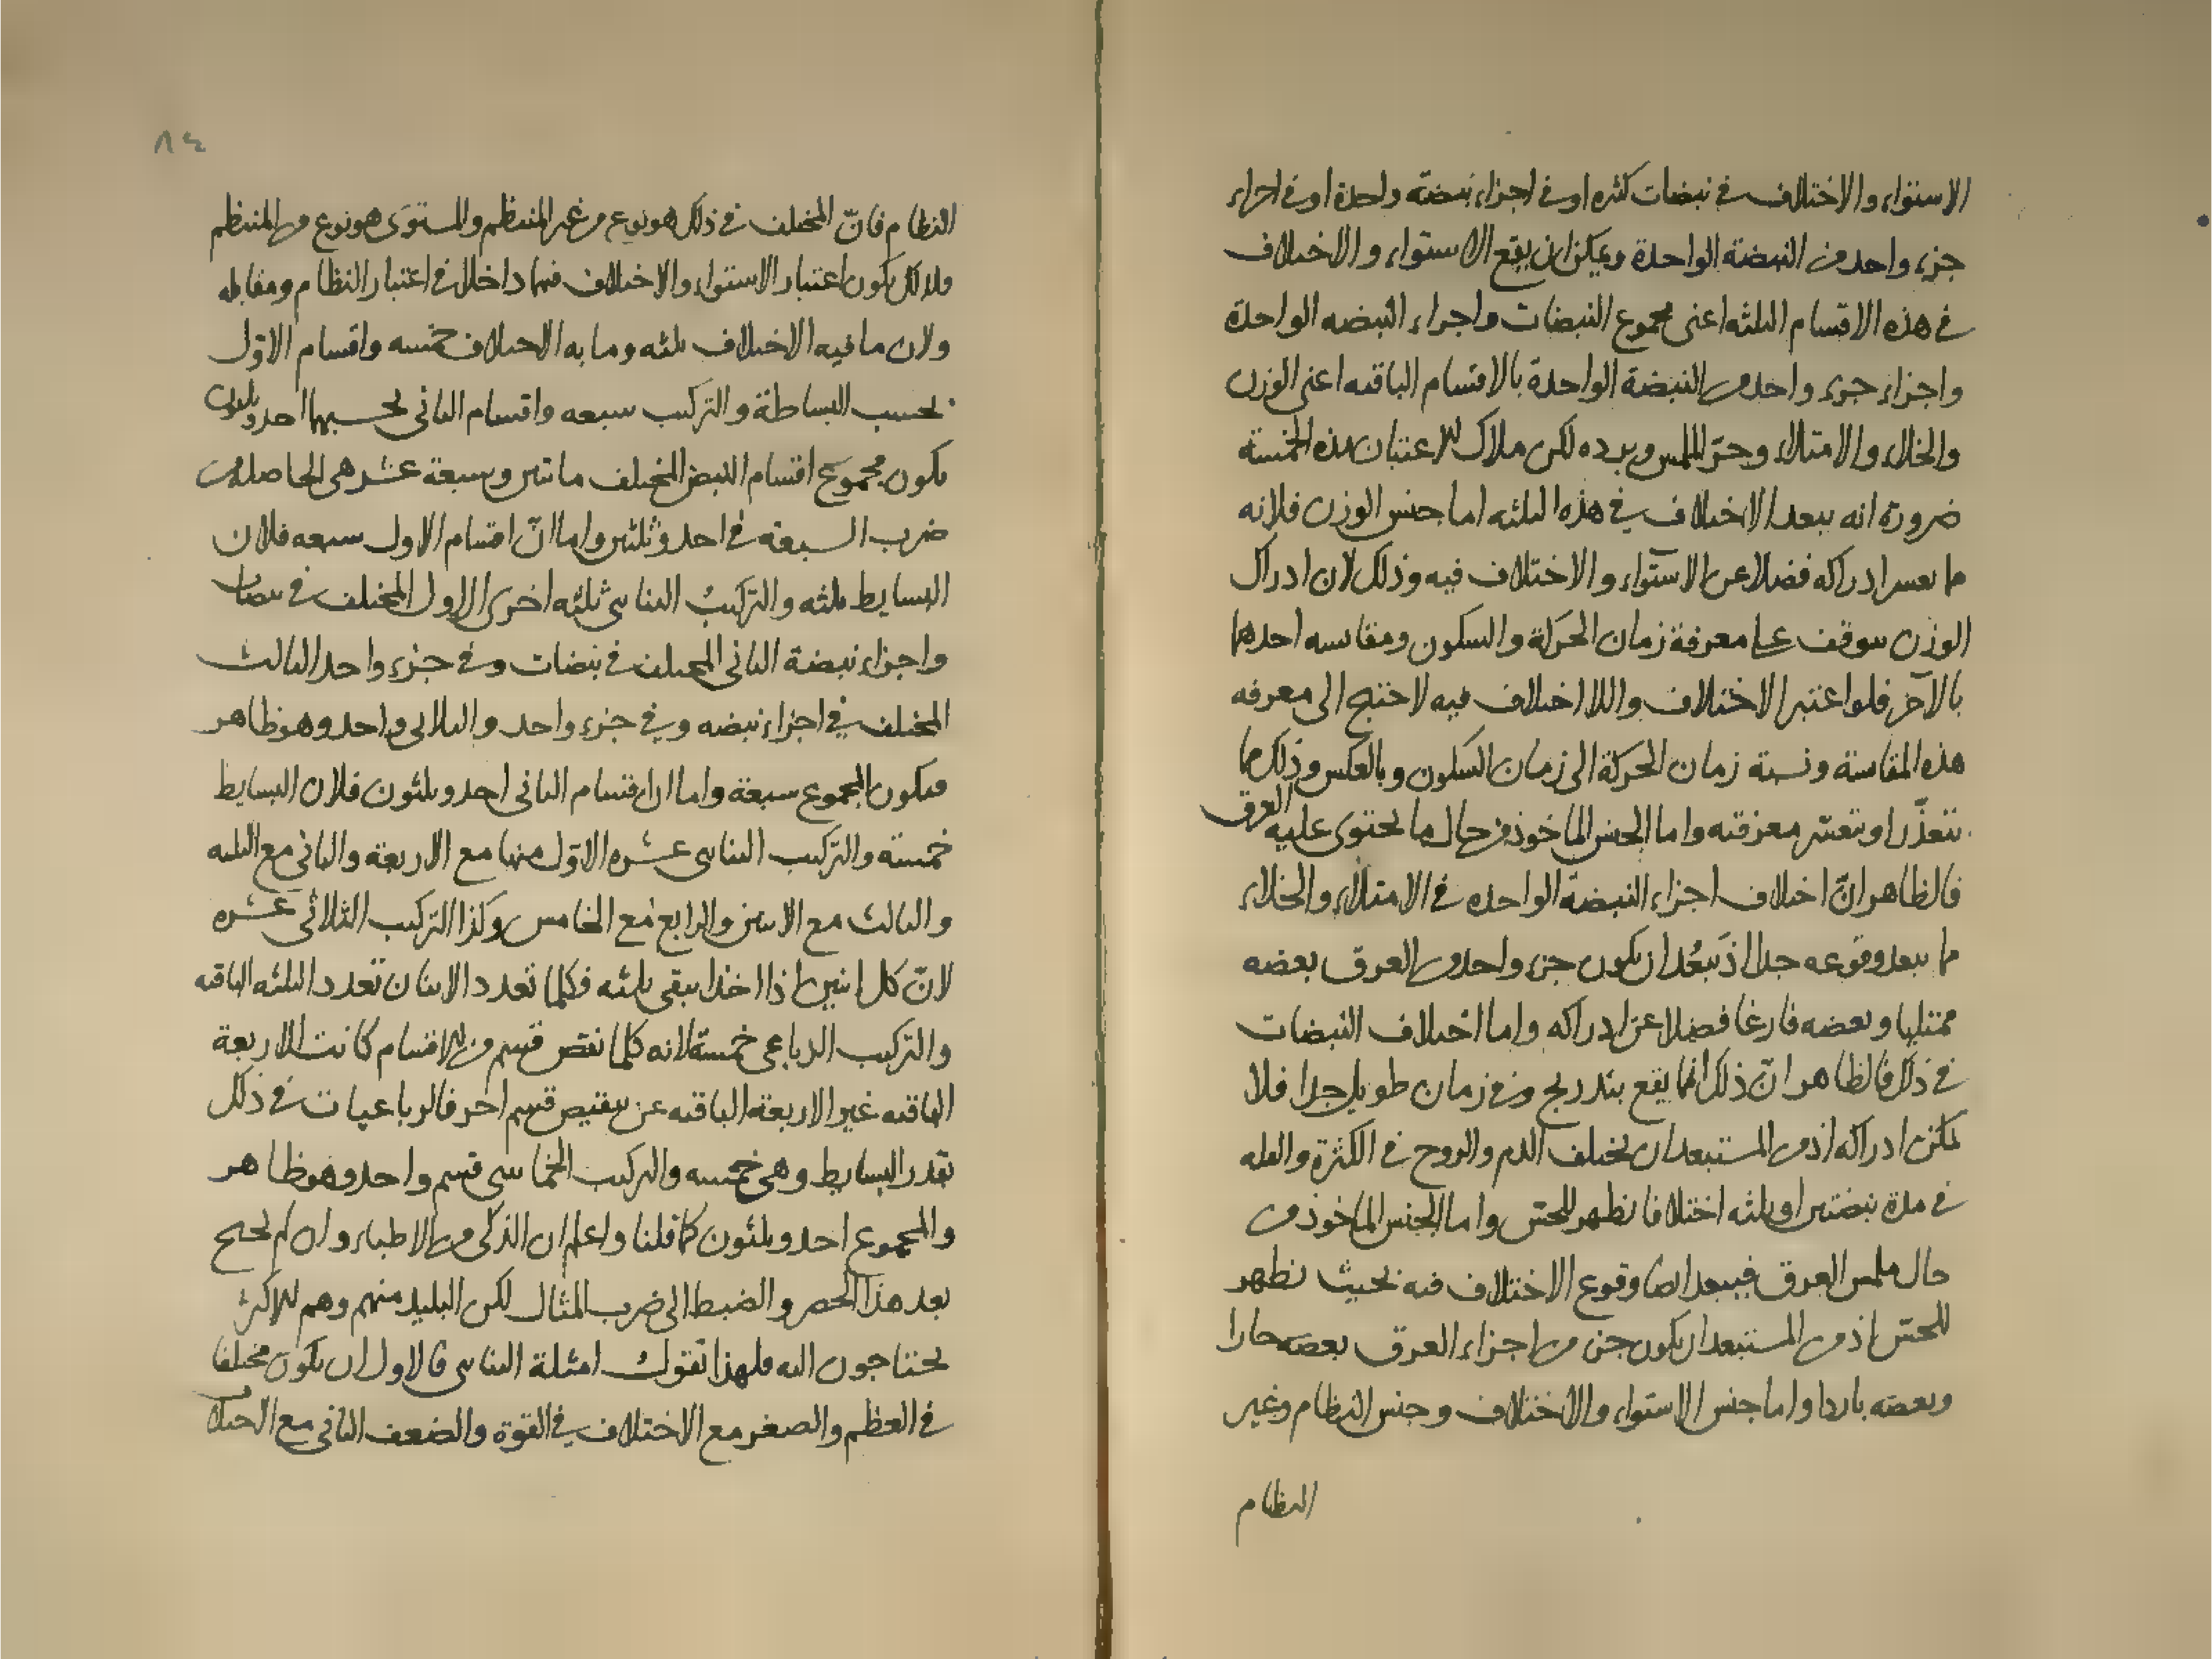 الاستواء والاختلاف في نبضات كثيرة او في اجزاء نبضة واحدة او في اجزاء
جزء واحد من النبضة الواحدة ويمكن ان يقع الاستواء والاختلاف
في هذه الاقسام الثلثه اعنى مجموع النبضات واجزاء النبضه الواحدة
واجزاء جزء واحد من النبضة الواحدة بالاقسام الباقيه اعنى الوزن
والخلاء والامتلاء وحرّ الملمس وبرده لكن ملاك الاعتبار بهذه الخمسة
ضرورة انه يبعد الاختلاف في هذه الثلثه اما جنس الوزن فلانه
مما يعسر ادراكه فضلا عن الاستواء والاختلاف فيه وذلك لان ادراك
الوزن يتوقف على معرفة زمان الحركة والسكون ومقايسه احدهما
بالآخر فلو اعتبر الاختلاف واللااختلاف فيه لاحتيج الى معرفه
هذه المقايسة ونسبة زمان الحركة الى زمان السكون وبالعكس وذلك مما
يتعذّر او يتعسّر معرفته واما الجنس الماخوذ من حال ما يحتوى عليه العرق
فالظاهر انّ اختلاف اجزاء النبضة الواحده في الامتلاء والخلاء
مما يبعد وقوعه جدا اذ يَبعُد ان يكون جزء واحد من العرق بعضه
ممتليا وبعضه فارغا فضلا عن ادراكه واما اختلاف النبضات
في ذلك فالظاهر انّ ذلك انما يقع بتدريج وفي زمان طويل جدا فلا
يمكن ادراكه اذ من المستبعد ان يختلف الدم والروح في الكثرة والقله
في مدة نبضتين او ثلثه اختلافا يظهر للحسّ واما الجنس الماخوذ من
حال ملمس العرق فيبعد ايضا وقوع الاختلاف فيه بحيث يظهر
للحسّ اذ من المستبعد ان يكون جزء من اجزاء العرق بعضه حارا
وبعضه باردا واما جنس الاستواء والاختلاف وجنس النظام وغير
النظام
٨٤
النظام فانّ المختلف في ذلك هو نوع من غير المنتظم والمستوى هو نوع من المنتظم
ولذلك يكون اعتبار الاستواء والاختلاف فيها داخلا في اعتبار النظام ومقابله
ولان ما فيه الاختلاف ثلثه وما به الاختلاف خمسه واقسام الاوّل
بحسب البساطة والتركيب سبعه واقسام الثانى بحسبها احد وثلثون
يكون مجموع اقسام النبض المختلف ماتين وسبعة عشر هى الحاصله من
ضرب السبعة في احد وثلثين واما انّ اقسام الاول سبعه فلان
البسايط ثلثه والتركيب الثنائى ثلثه اخرى الاول المختلف في نبضات
واجزاء نبضة الثانى المختلف في نبضات وفي جزء واحد الثالث
المختلف في اجزاء نبضه وفي جزء واحد والثلاثى واحد وهو ظاهر
فيكون المجموع سبعة واما ان اقسام الثانى احد وثلثون فلان البسايط
خمسة والتركيب الثنائى عشره الاوّل منها مع الاربعة والثانى مع الثلثه
والثالث مع الاثنين والرابع مع الخامس وكذا التركيب الثلاثى عشره
لانّ كل اثنين اذا اخذا يبقى ثلثه فكلما تعدد الاثنان تعدد الثلثه الباقيه
والتركيب الرباعى خمسة لانه كلما نقص قسم من الاقسام كانت الاربعة
الباقيه غير الاربعة الباقيه عن تنقيص قسم اخر فالرباعيات في ذلك
بقدر البسايط وهى خمسه والتركيب الخماسى قسم واحد وهو ظاهر
والمجموع احد وثلثون كما قلنا واعلم ان الذكى من الاطباء وان لم يحتج
بعد هذا الحصر والضبط الى ضرب المثال لكن البليد منهم وهم الاكثر
يحتاجون اليه فلهذا نقول امثلة الثنائى فالاول ان يكون مختلفا
في العظم والصغر مع الاختلاف في القوة والضعف الثانى مع اختلاف